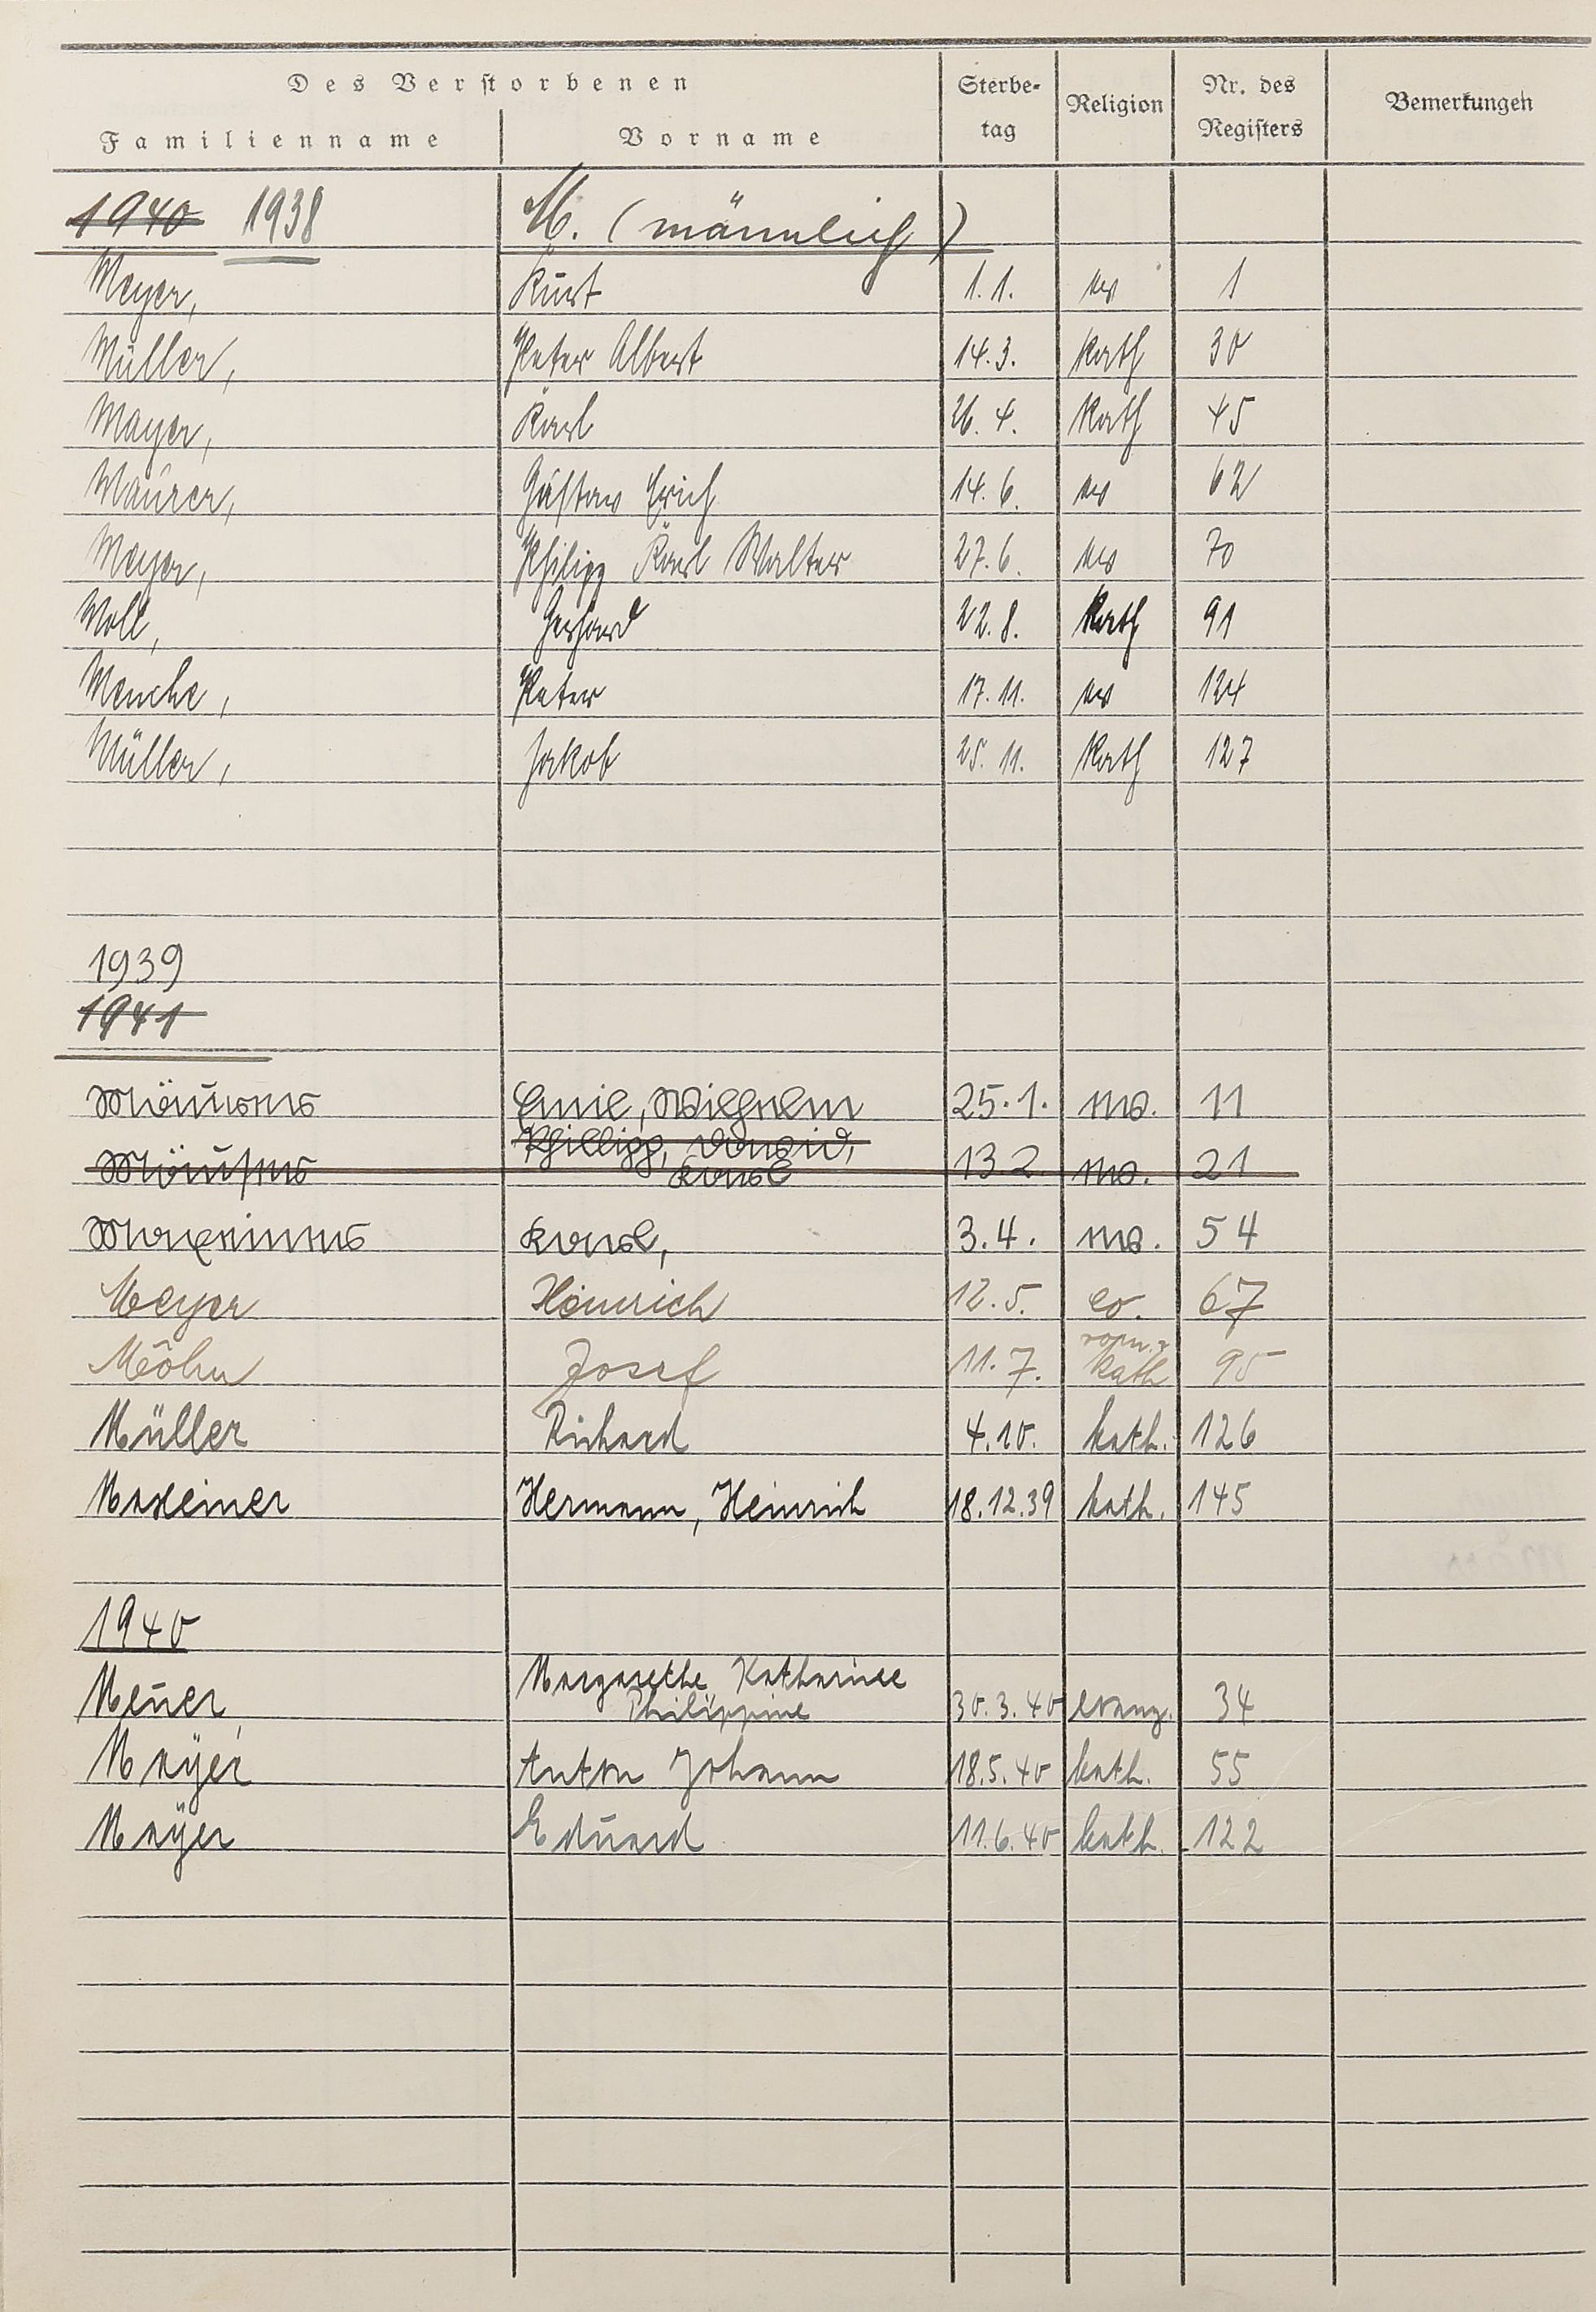 Des Verstorbenen
Familienname Vorname Sterbetag Religion Nr. des Registers Bemerkungen
1940 1938 M. (männlich)
Meyer, Kurt 1.1. ev 1
Müller, Peter Albert 14.3. Kath 30
Mayer, Karl 26.4. Kath 45
Maurer, Gustav Erich 14.6. ev 62
Meyer, Philipp Karl Walter 27.6. ev 70
Moll, Gerhard 22.8. Kath 91
Menche, Peter 17.11. ev 124
Müller, Jakob 25.11. Kath 127
1939
1941
Emil, Wilhelm 25.1. ev. 11
Philipp, David,
Karl 13.2. ev. 21
Karl, 3.4. ev. 54
Meyer Heinrich 12.5. ev. 67
Möhn Josef 11.7. Kath 95
Müller Richard 4.10. kath. 126
Maxeiner Hermann, Heinrich 18.12.39 kath. 145
1940
Margarethe Katharine
Meuer, Philippine 30.3.40 evang. 34
Mayer Anton Johann 18.5.40 kath. 55
Mayer Eduard 11.6.40 kath. 122